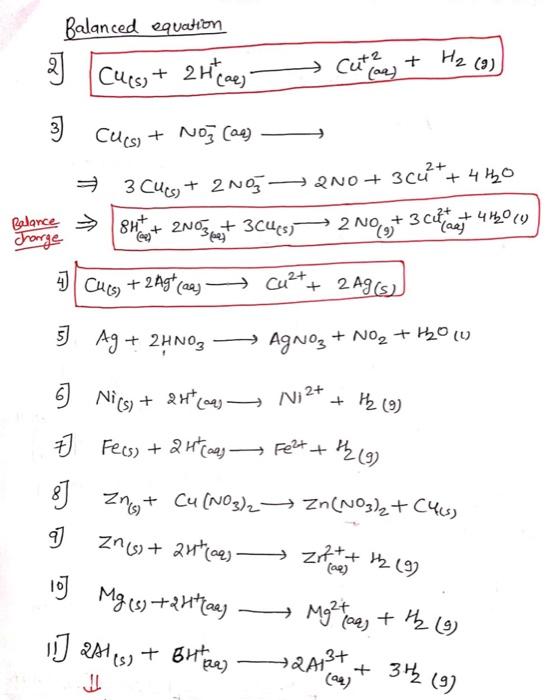 Balanced equation
2] Cu(s) + 2H⁺(aq) ⟶ Cu⁺²(aq) + H₂(g)
3] Cu(s) + NO₃⁻(aq) ⟶
⇒ 3Cu(s) + 2NO₃⁻ ⟶ 2NO + 3Cu²⁺ + 4H₂O
Balance charge ⇒ 8H⁺(aq) + 2NO₃⁻(aq) + 3Cu(s) ⟶ 2NO(g) + 3Cu²⁺(aq) + 4H₂O(l)
4] Cu(s) + 2Ag⁺(aq) ⟶ Cu²⁺ + 2Ag(s)
5] Ag + 2HNO₃ ⟶ AgNO₃ + NO₂ + H₂O(l)
6] Ni(s) + 2H⁺(aq) ⟶ Ni²⁺ + H₂(g)
7] Fe(s) + 2H⁺(aq) ⟶ Fe²⁺ + H₂(g)
8] Zn(s) + Cu(NO₃)₂ ⟶ Zn(NO₃)₂ + Cu(s)
9] Zn(s) + 2H⁺(aq) ⟶ Zn²⁺(aq) + H₂(g)
10] Mg(s) + 2H⁺(aq) ⟶ Mg²⁺(aq) + H₂(g)
11] 2Al(s) + 6H⁺(aq) ⟶ 2Al³⁺(aq) + 3H₂(g)
⇓